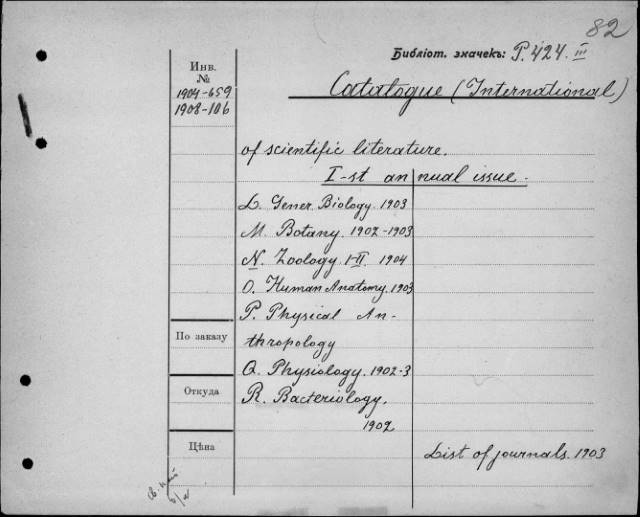 82
Библіот. значекъ: P.424.III
Инв.
№
1904-659
1908-106
Catalogue (International)
of scientific literature.
I-st annual issue.
L. Gener. Biology. 1903
M. Botany. 1902-1903
N. Zoology. I-II. 1904
O. Human Anatomy. 1903
P. Physical An-
thropology
Q. Physiology. 1902-3
R. Bacteriology.
1902
По заказу
Откуда
Цѣна
List of journals. 1903